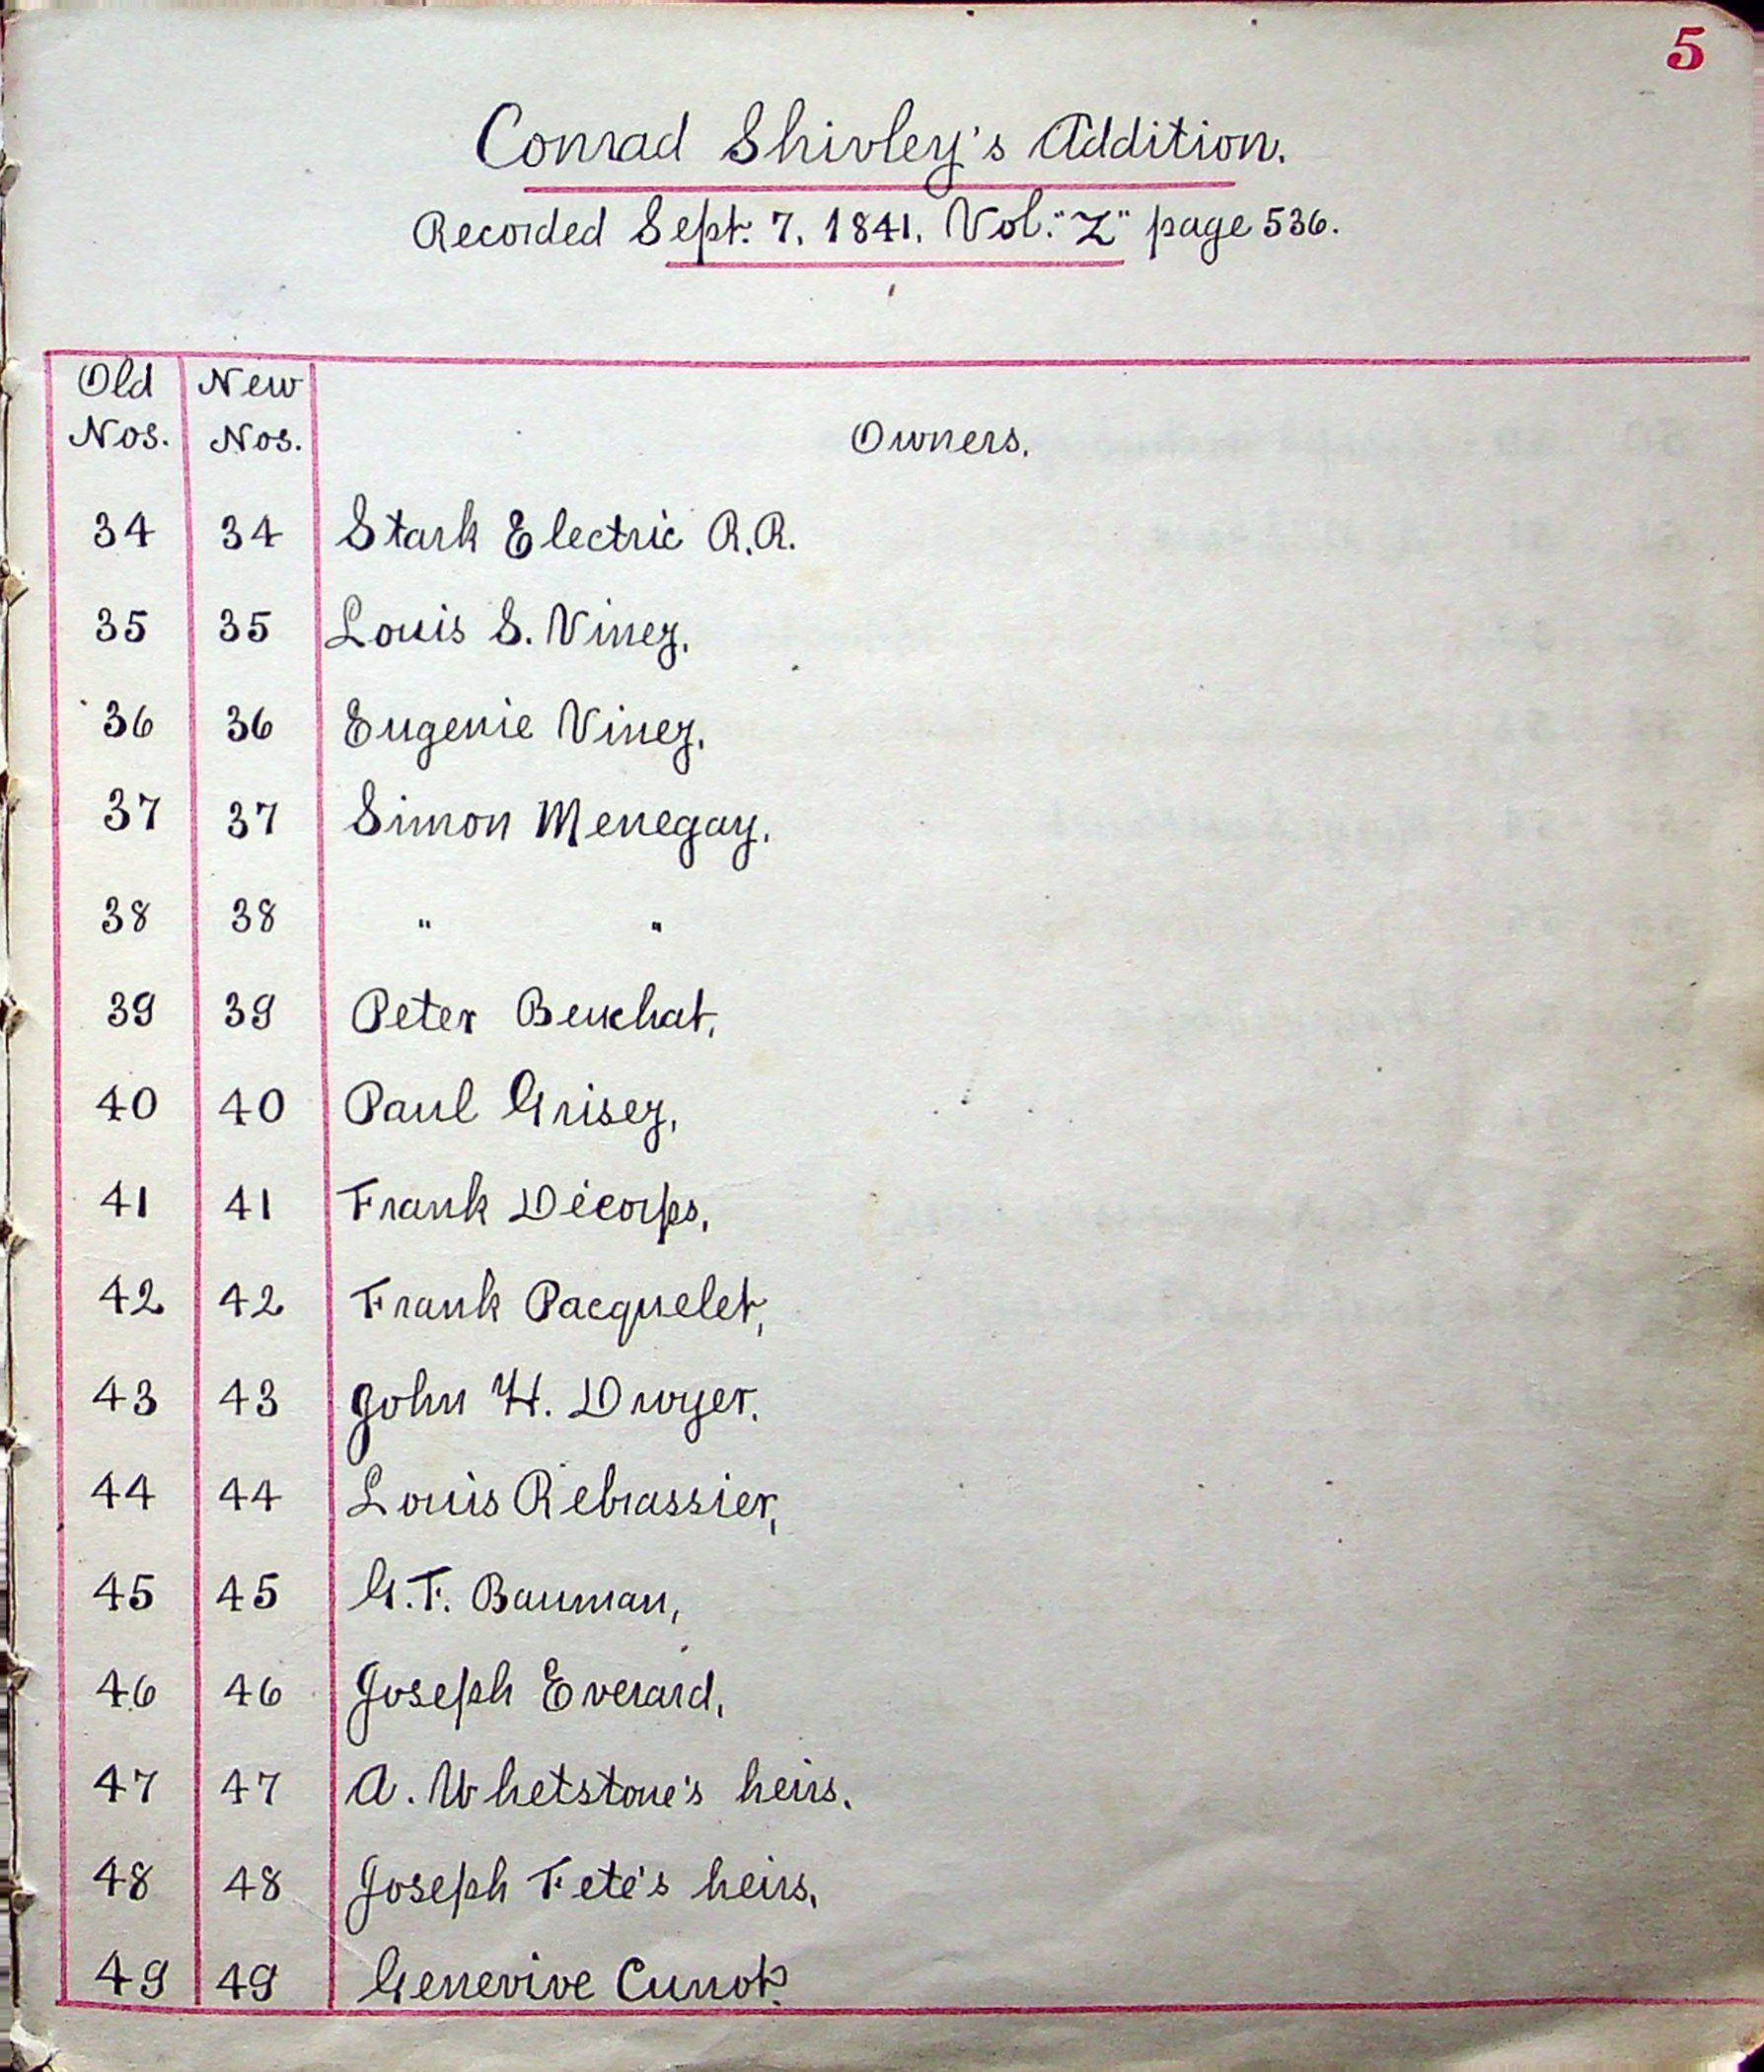 5
Conrad Shivley's Addition.
Recorded Sept. 7. 1841. Vol. "Z" page 536.
Old Nos. New Nos. Owners.
34 34 Stark Electric R.R.
35 35 Louis S. Viney.
36 36 Eugenie Viney.
37 37 Simon Menegay.
38 38 " "
39 39 Peter Beuchat,
40 40 Paul Grisey,
41 41 Frank Décorps,
42 42 Frank Pacquelet,
43 43 John H. Dwyer.
44 44 Louis Rebrassier,
45 45 G.F. Bauman,
46 46 Joseph Everard,
47 47 A. Whetstone's heirs.
48 48 Joseph Fete's heirs,
49 49 Genevive Cunot.